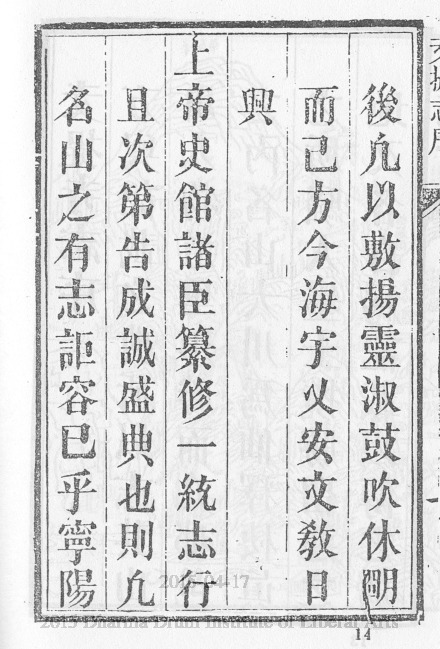 後凢以敷揚靈淑鼓吹休明
而已方今海宇乂安文敎日
興
上帝史館諸臣纂修一統志行
且次第告成誠盛典也則凢
名山之有志詎容已乎寧陽
2016-04-17
2015 Dharma Drum Institute of Liberal Arts
14